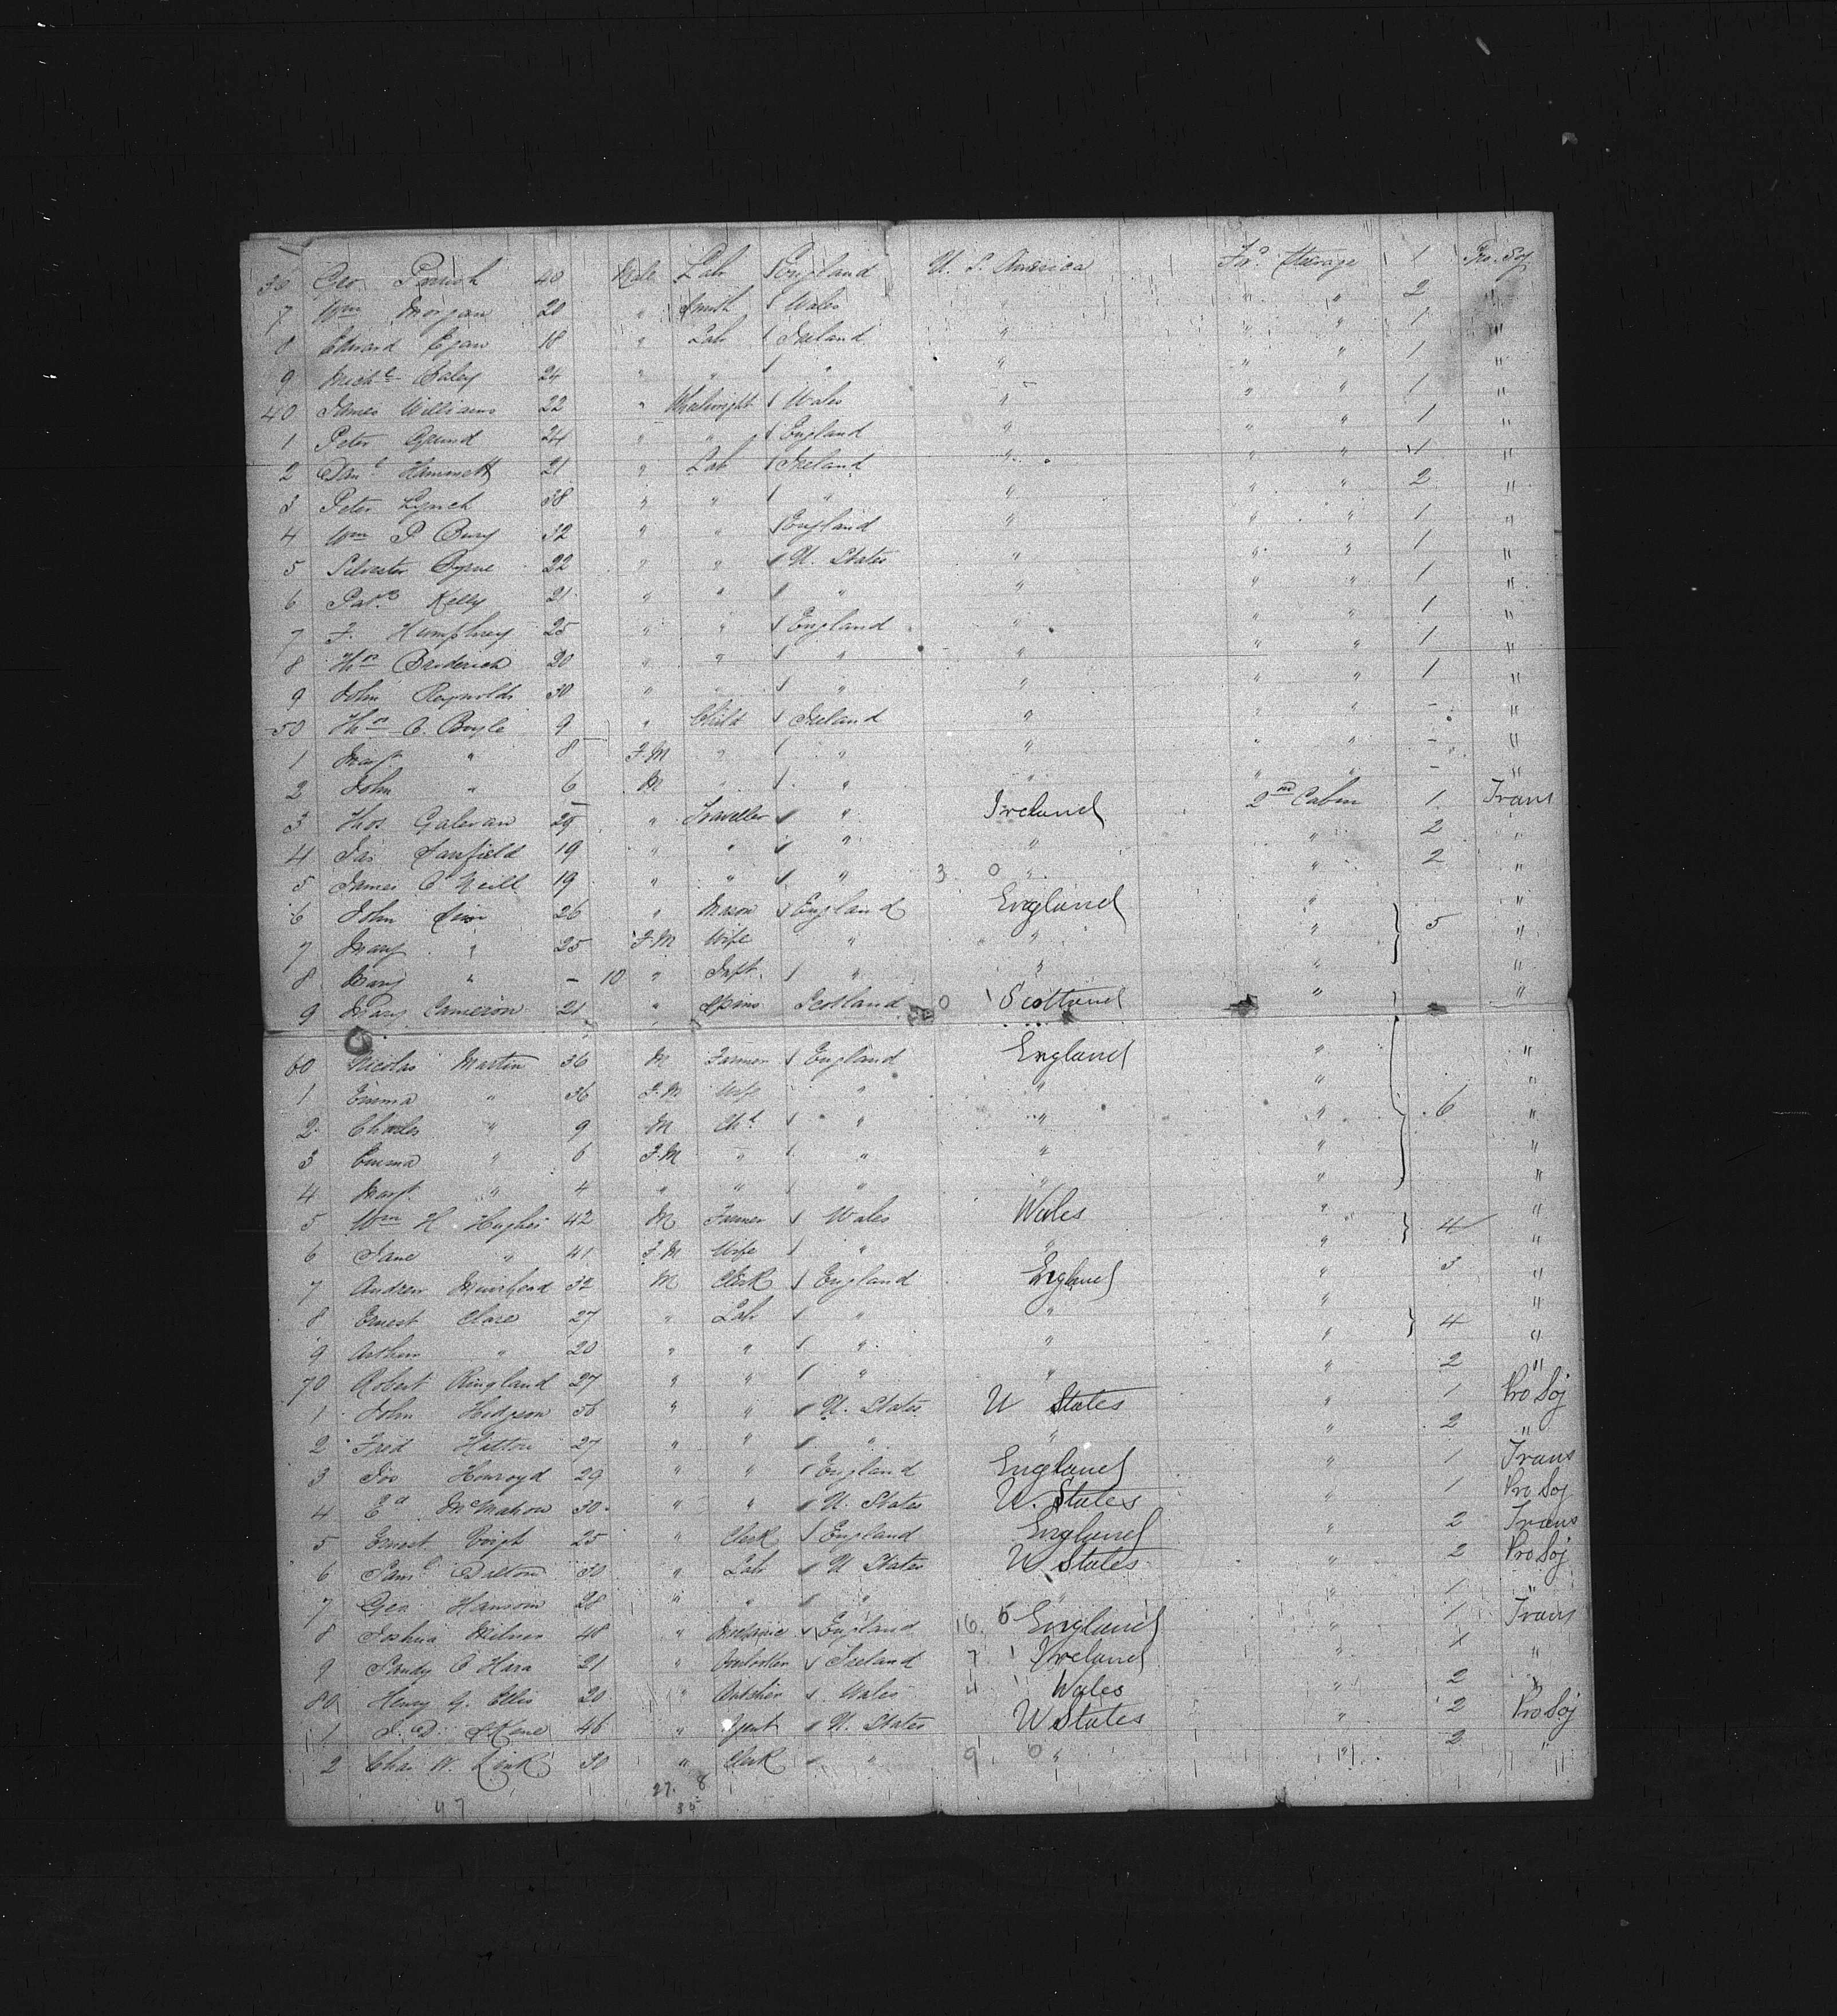 36 Geo Parrish 40 Male Lab England U. S. America Fr? Steerage 1 Pro. Soj
7 Wm Morgan 20 " Smith Wales " " " 2 "
8 Edward Egan 18 " Lab Ireland " " " 1 "
9 Michl Daley 24 " " " " " " 1 "
40 James Williams 22 " Wheelwright Wales " " " 1 "
1 Peter 24 " " England " " " 1 "
2 Danl Hammett 21 " Lab Ireland " " " 1 "
3 Peter Lynch 38 " " " " " " 2 "
4 Wm P Bury 32 " " England " " " 1 "
5 Silvester Byrne 22 " " U. States " " " 1 "
6 Patk Kelly 21 " " " " " " 1 "
7 F. Humphrey 25 " " England " " " 1 "
8 Ths Broderick 20 " " " " " " 1 "
9 John Reynolds 30 " " " " " " 1 "
50 Ths C. Boyle 9 " Child Ireland " " " - "
1 Margt " 8 F.M " " " " " - "
2 John " 6 M " " " " " - "
3 Thos Galevan 25 " Traveller " Ireland 2nd Cabin 1 Trans
4 Jas Canfield 19 " " " " " 2 "
5 James O'Neill 19 " " " 3 0 " " 2 "
6 John 26 " Mason England England " "
7 Mary " 25 F.M Wife " " " 5 "
8 Mary " - 10 " Inft. " " " "
9 Mary Cameron 21 " Spins Scotland 0 1 Scotland " "
60 Nicolas Martin 36 M Farmer England England " "
1 Emma " 36 F.M Wife " " " "
2 Charles " 9 M Chd " " " 6 "
3 Emma " 6 F.M " " " " "
4 Margt " 4 " " " " " "
5 Wm H Hughes 42 M Farmer Wales Wales " "
6 Jane " 41 F.M Wife " " " 4 "
7 Andrew Muirhead 32 M Clerk England England " 3 "
8 Ernest Clare 27 " Lab " " " "
9 Arthur " 20 " " " " " 4 "
70 Robert Ringland 27 " " " " " 2 "
1 John Hodgson 56 " " U. States U States " 1 Pro Soj
2 Fred Hilton 27 " " " " " 2 "
3 Jos Honroyd 29 " " England England " 1 Trans
4 Ed McMahon 30 " " U. States U. States " 1 Pro Soj
5 Ernest Voigt 25 " Clerk England England " 2 Trans
6 Saml Dilton 30 " Lab U States U States " 2 Pro Soj
7 Geo Hansom 28 " " " " " 1 "
8 Joshua Milner 48 " England 16. 5 England " 1 Trans
9 Sandy O Hara 21 " Ireland 7 1 Ireland " "
80 Henry G. Ellis 20 " Wales 4 1 Wales " 2 "
1 J. D. Skene 46 " Agent U. States U States " 2 Pro Soj
2 Chas W. Link 30 " Clerk " 9 0 " " 2 "
27. 8
47